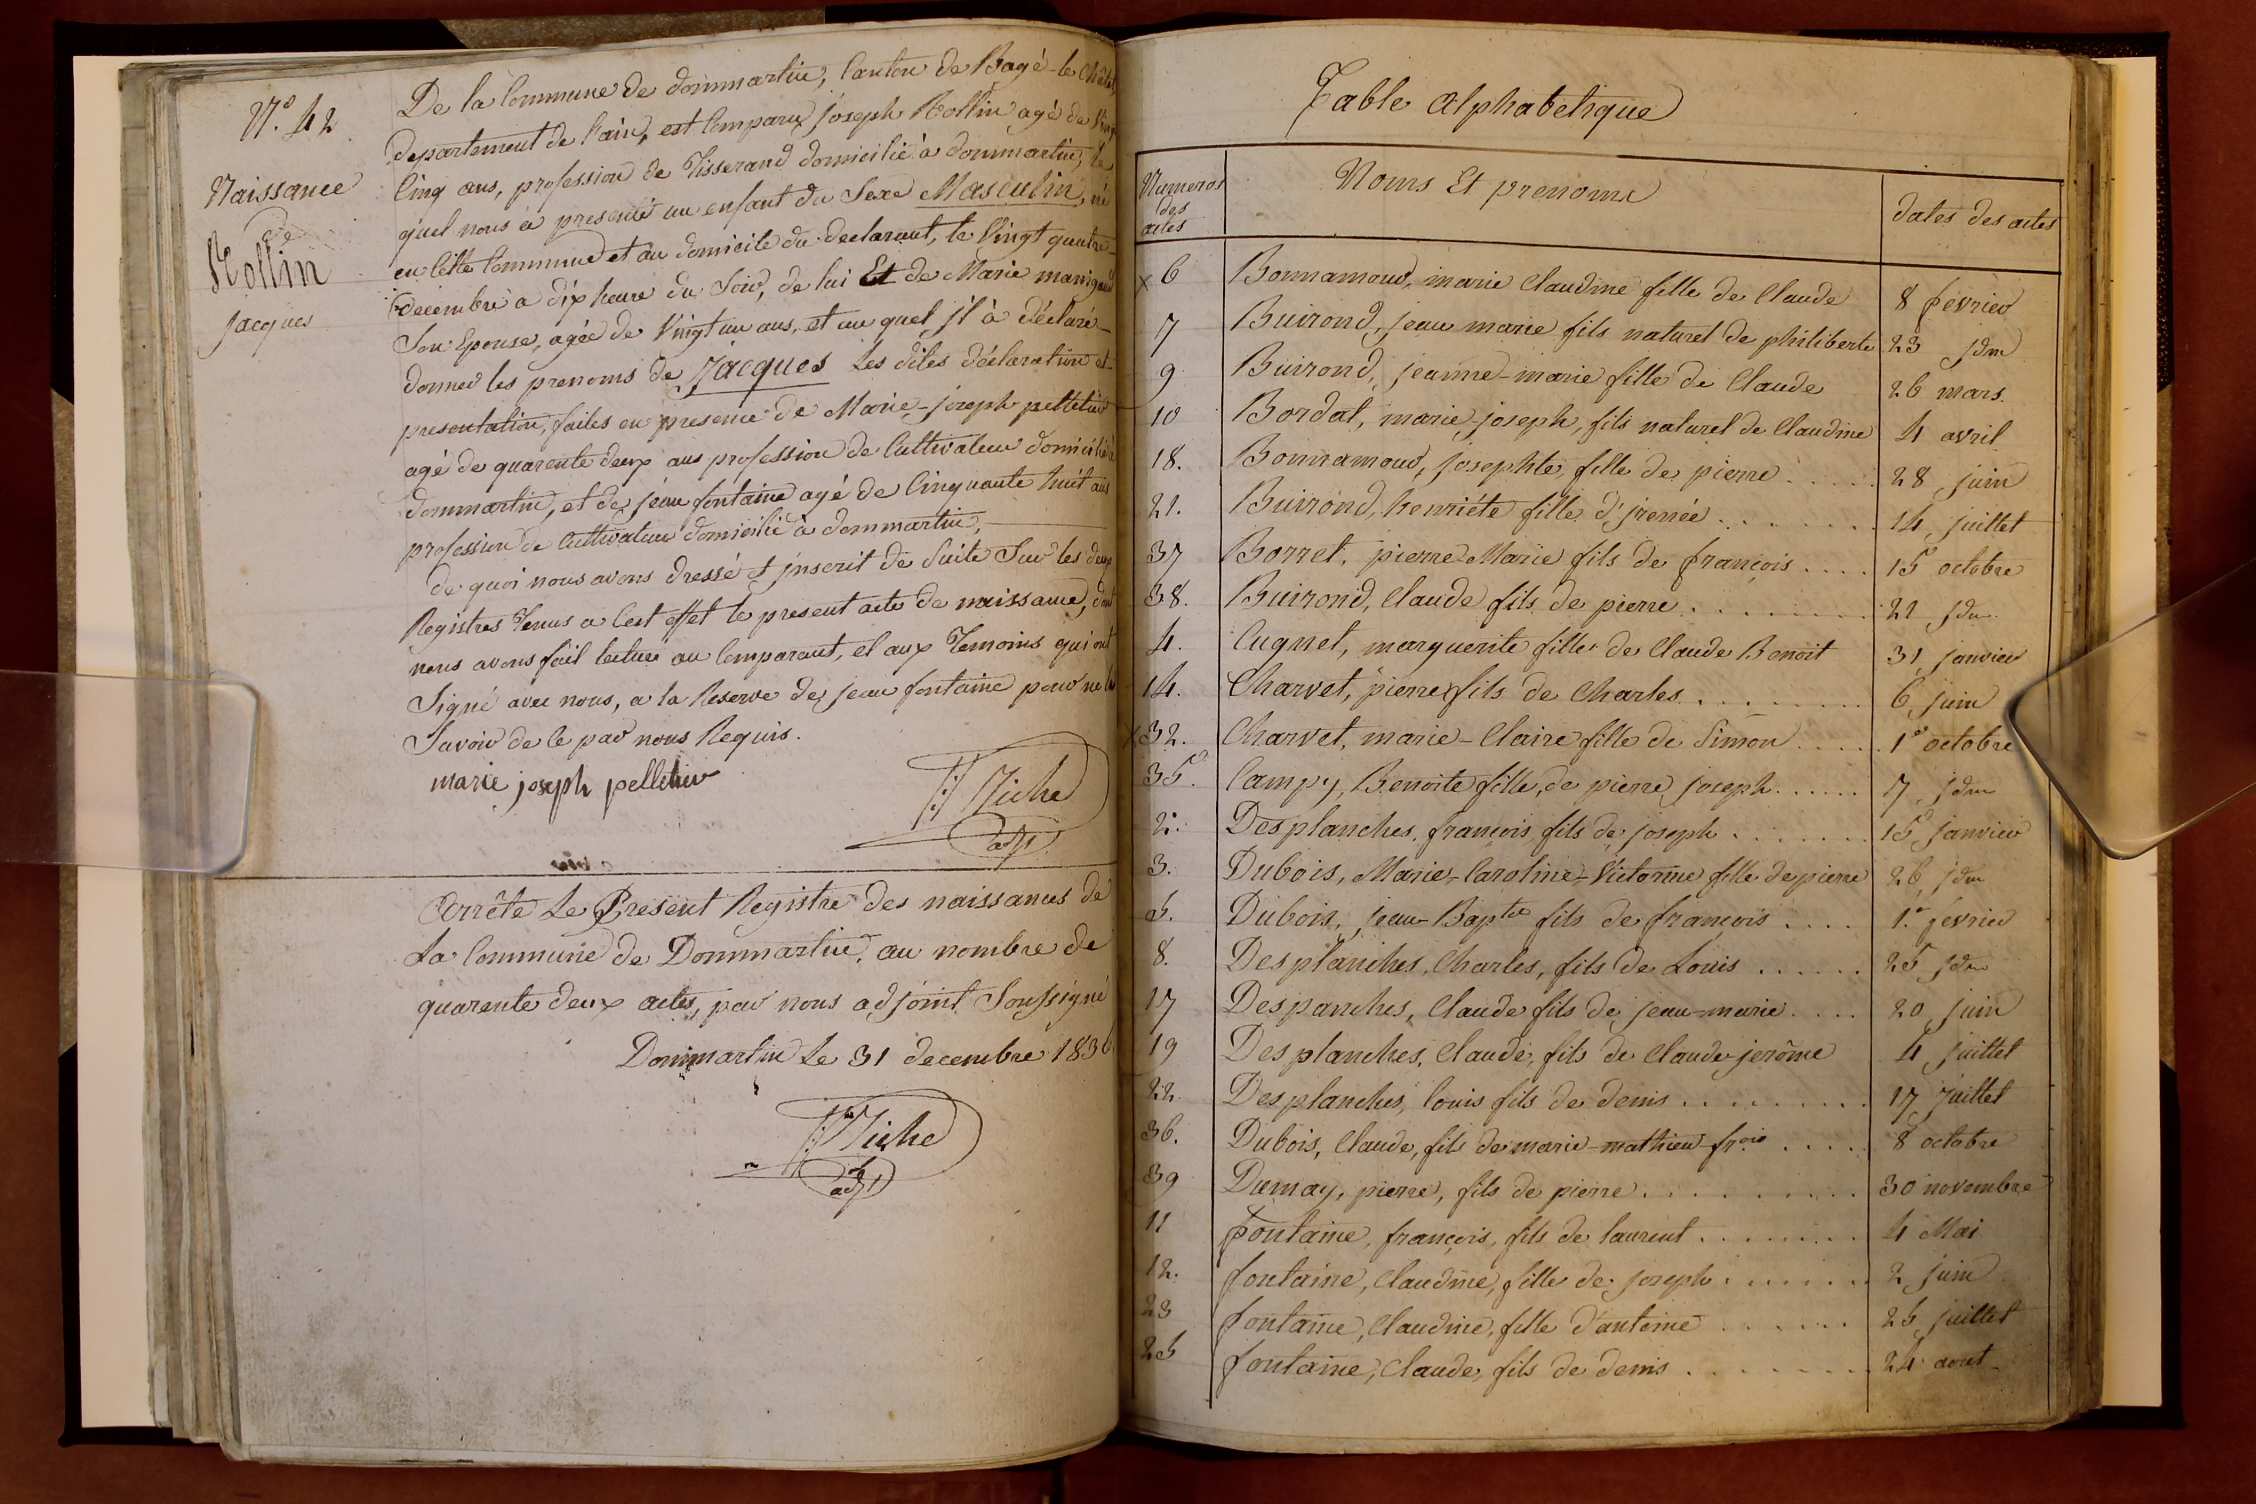 N.° 42
Naissance
de
Rollin
jacques
De la Commune de dommartin, Canton de Bagé-le Châtel
departement de l'ain, est Comparu joseph Rollin agé de Vingt
Cinq ans, profession de Tisserand domicilié à dommartin, le
quel nous à presenté un enfant du Sexe Masculin, né
en Cette Commune et au domicile du declarant, le Vingt quatre
Decembre a dix heure du Soir, de lui Et de Marie manigand
Son Epouse, agée de Vingt un ans, et au quel jl à déclaré
donner les prenoms de Jacques Les dites déclaration et
presentation, faites en presence de Marie-joseph pelletier
agé de quarente deux ans profession de Cultivateur domicilié à
dommartin, et de jean fontaine agé de Cinquante huit ans
profession de Cultivateur domicilié à dommartin,
de quoi nous avons dressé et jnscrit de Suite Sur les deux
Registres Tenus a Cest effet le present acte de naissance, dont
nous avons fait lecture au Comparant, et aux Temoins qui ont
Signé avec nous, a la Reserve de jean fontaine pour ne le
Savoir de le par nous Requis.
marie joseph pelletier
Miche
adj.
Arrête Le Present Registre des naissances de
La Commune de Dommartin, au nombre de
quarente deux actes, par nous adjoint Soussigné
Dommartin Le 31 decembre 1836
Miche
adj.
Table Alphabetique
Numeros des actes Noms Et prenoms dates des actes
x 6 Bonnamour, marie Claudine fille de Claude 8 fevrier
7 Buirond, jean marie fils naturel de philiberte 23 jdm
9 Buirond, jeanne-marie fille de Claude 26 mars.
10 Bordat, marie joseph, fils naturel de Claudine 4 avril
18. Bonnamour, josephte, fille de pierre ..... 28 juin
21. Buirond, henriéte fille d'jrenée ....... 14 juillet
37 Borret, pierre Marie fils de françois .... 15 octobre
38. Buirond, Claude fils de pierre ........ 21 jdm
4. Cugnet, marguerite fille de Claude Benoit 31 janvier
14. Charvet, pierre fils de Charles ........ 6 juin
x 32. Charvet, marie-Claire fille de Simon ..... 1er octobre
35. Campy, Benoite fille, de pierre joseph ...... 7 jdm
2. Desplanches, françois fils de joseph ....... 15 janvier
3. Dubois, Marie-Caroline-Victorine fille de pierre 26 jdm
5. Dubois, jean-Bapte fils de françois .... 1.er fevrier
8. Desplanches, Charles, fils de Louis ...... 25 jdm
17 Despanches, Claude fils de jean-marie .... 20 juin
19 Desplanches, Claude, fils de Claude jerôme 4 juillet
22. Desplanches, louis fils de denis ......... 17 juillet
36. Dubois, Claude, fils de marie-mathieu-fr.ois ..... 8 octobre
39 Dumay, pierre, fils de pierre .......... 30 novembre
11 Fontaine, françois, fils de laurent ........ 4 Mai
12. fontaine, Claudine, fille de joseph ....... 2 juin
23 fontaine, Claudine, fille d'antoine ...... 25 juillet
25 fontaine, Claude, fils de denis ........ 24 aout